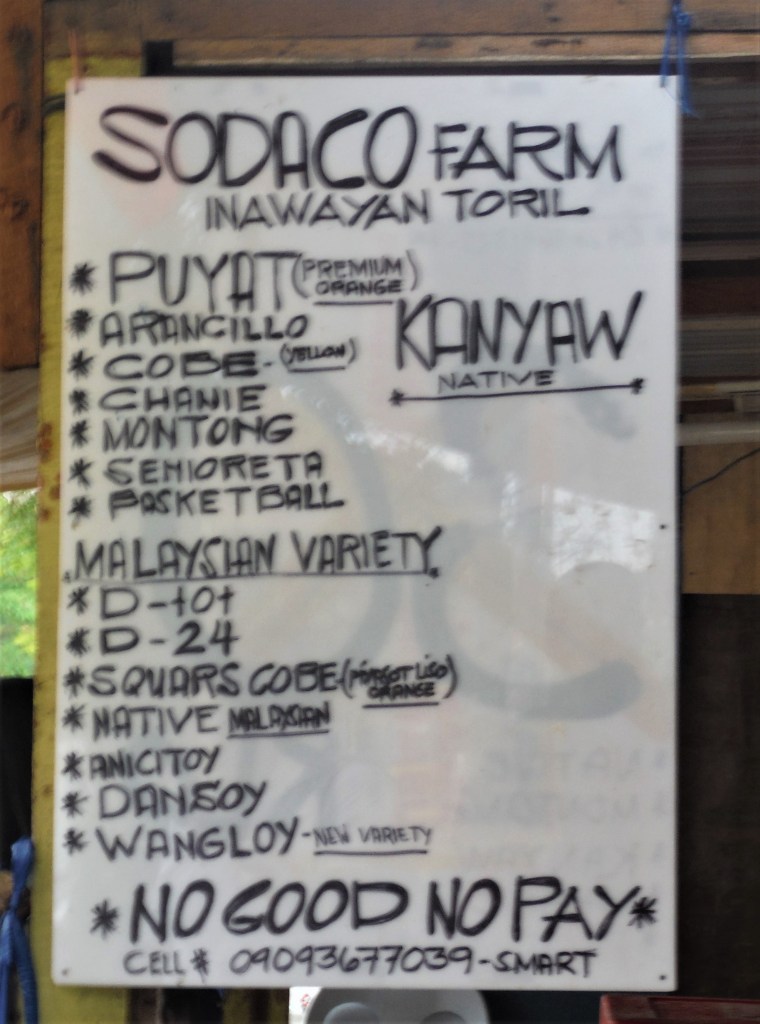 SODACO FARM
INAWAYAN TORIL
* PUYAT (PREMIUM ORANGE)
* ARANCILLO
* COBE - (YELLOW)
KANYAW
NATIVE
* CHANIE
* MONTONG
* SENIORETA
* BASKETBALL
MALAYSIAN VARIETY
* D-101
* D-24
* SQUARS COBE ( ORANGE)
* NATIVE MALAYSIAN
* ANICITOY
* DANSOY
* WANGLOY - NEW VARIETY
* NO GOOD NO PAY *
CELL # 09093677039 - SMART